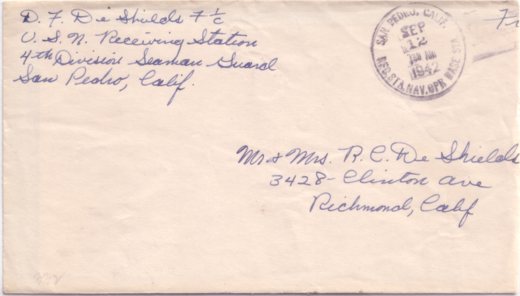 D. F. De Shields F 1/c
U.S.N. Receiving Station
4th Division Seaman-Guard
San Pedro, Calif.
SAN PEDRO, CALIF.
SEP
12
1942
REC.STA.NAV.OPR BASE
Fr
Mr & Mrs. R. C. De Shields
3428- Clinton ave
Richmond, Calif